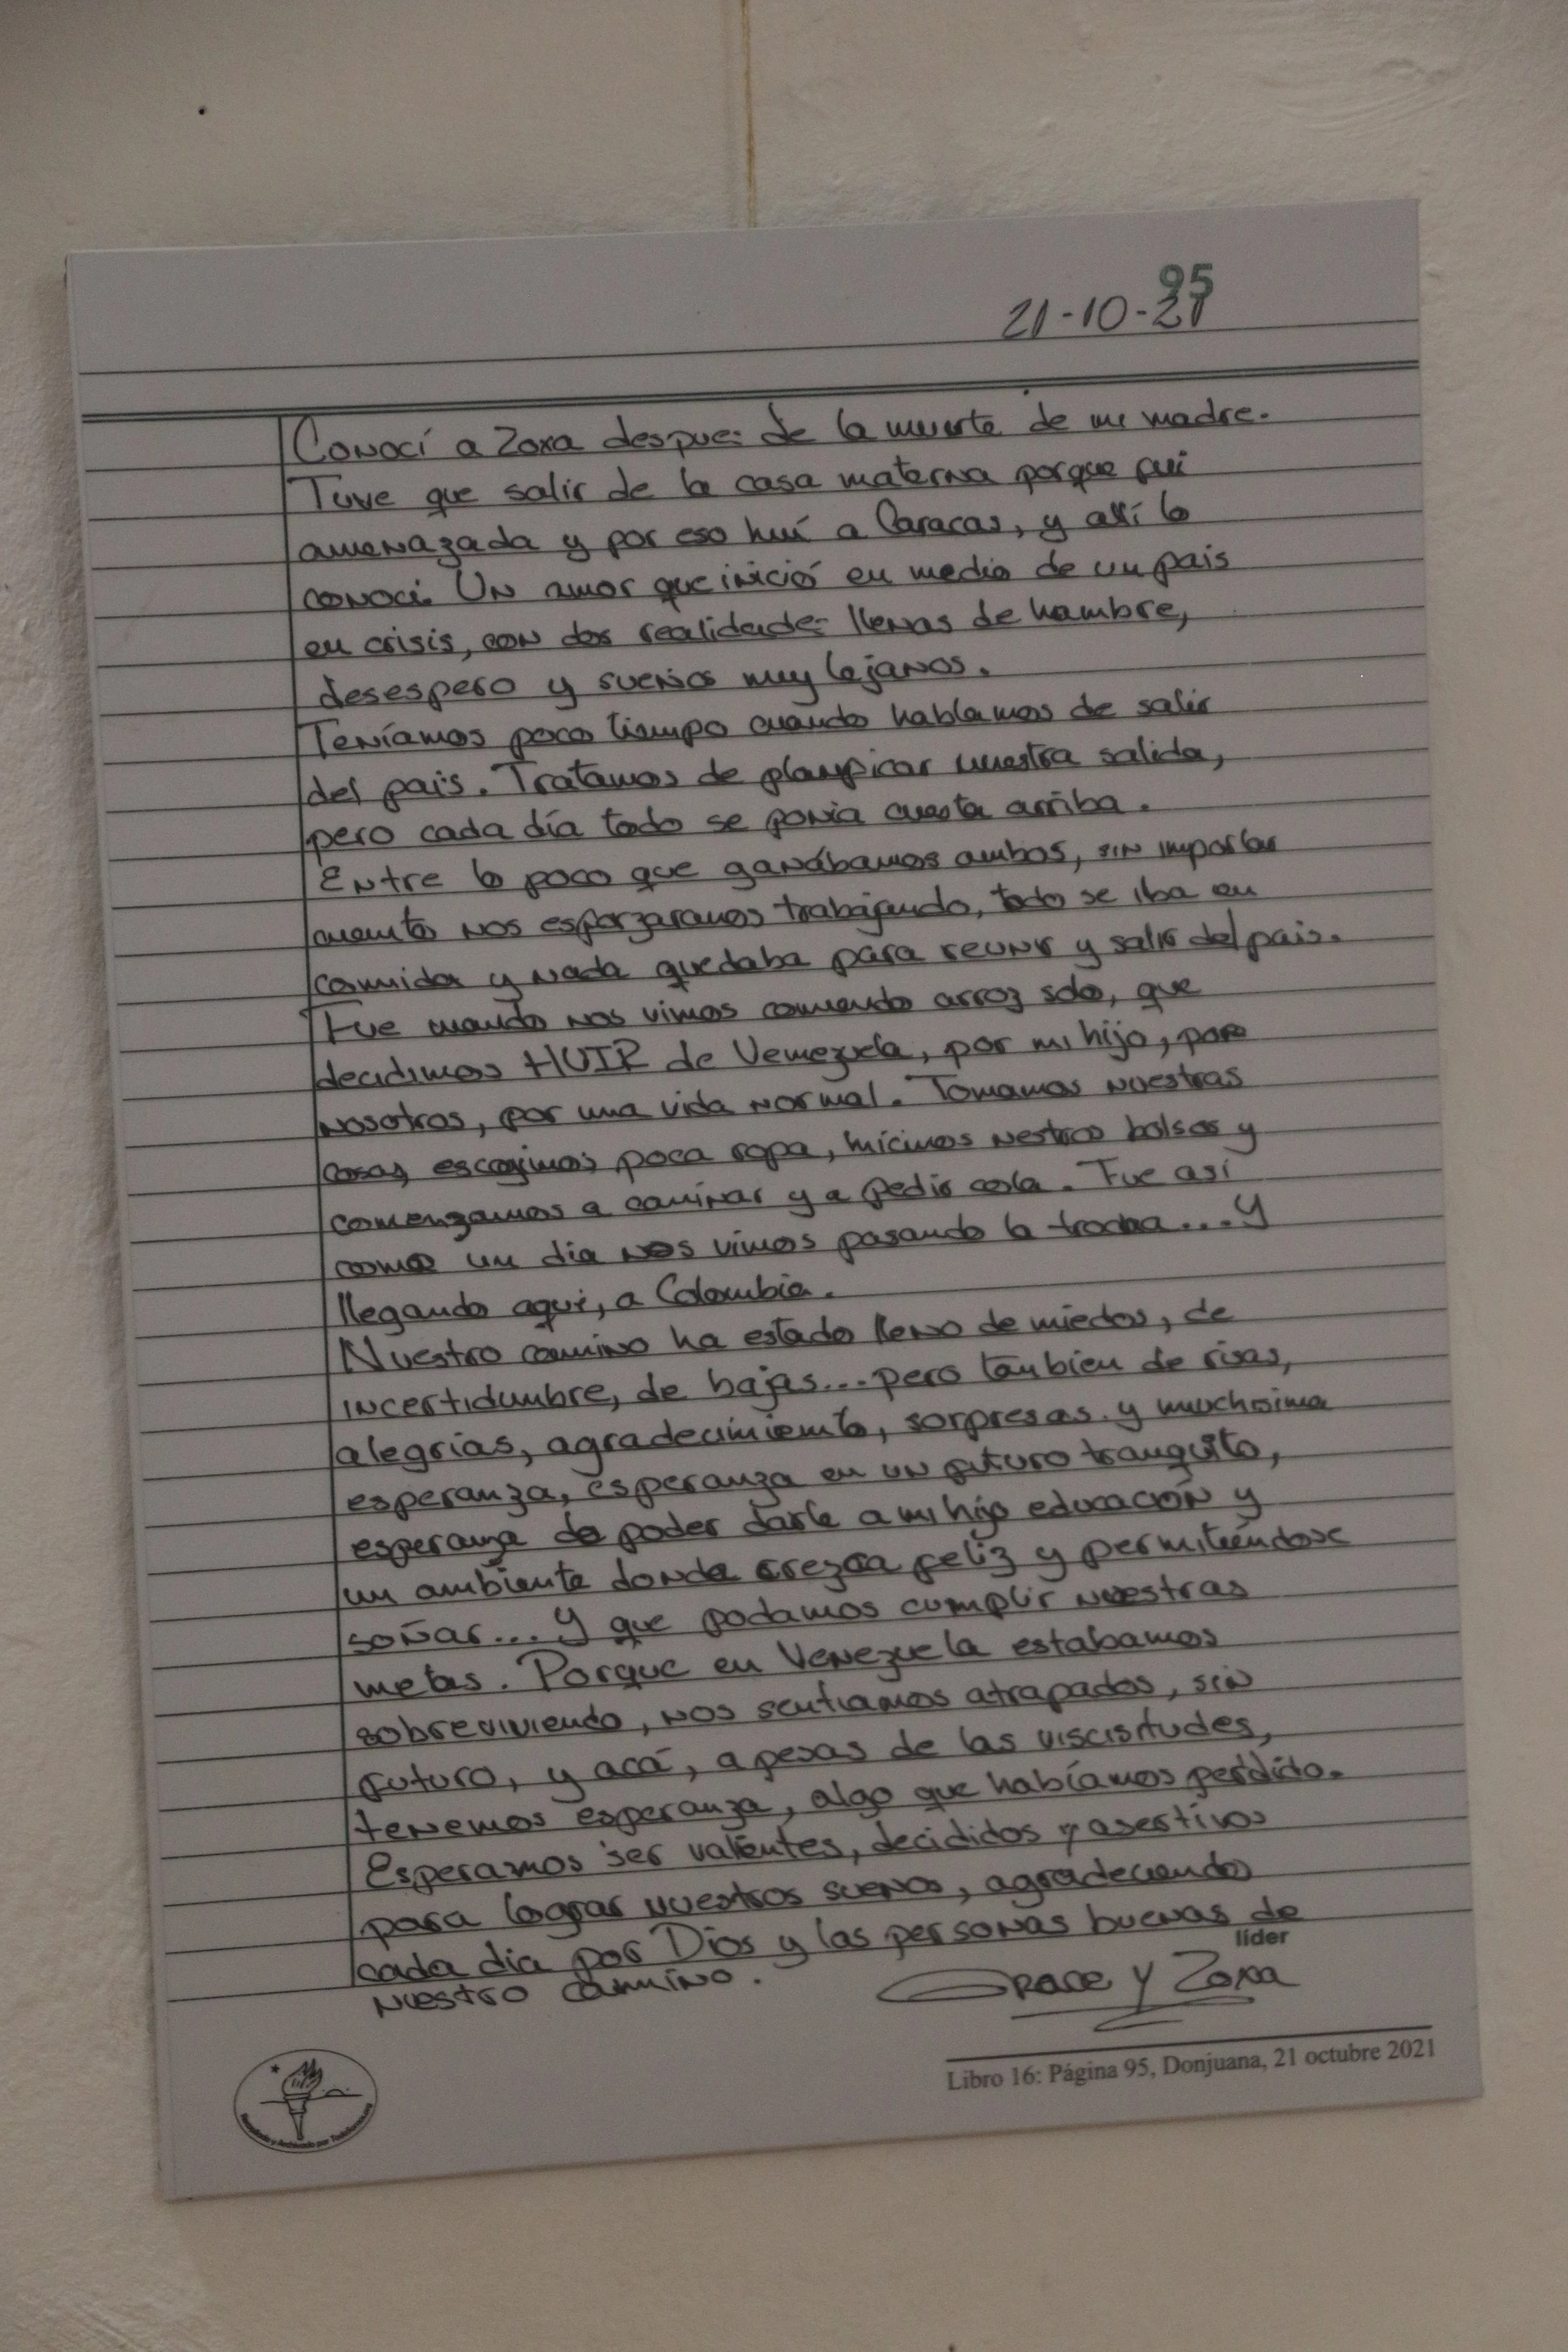 95
21-10-21
Conocí a Zoxa despues de la muerte de mi madre.
Tuve que salir de la casa materna porque fui
amenazada y por eso huí a Caracas, y allí lo
conoci. Un amor que inició en medio de un pais
en crisis, con dos realidades llenas de hambre,
desespero y sueños muy lejanos.
Teníamos poco tiempo cuando hablamos de salir
del país. Tratamos de planificar nuestra salida,
pero cada día todo se ponia cuesta arriba.
Entre lo poco que ganábamos ambos, sin importar
cuanto nos esforzaramos trabajando, todo se iba en
comida y nada quedaba para reunir y salir del pais.
Fue cuando nos vimos comiendo arroz solo, que
decidimos HUIR de Venezuela, por mi hijo, por
nosotros, por una vida normal. Tomamos nuestras
cosas, escogimos poca ropa, hicimos nestros bolsos y
comenzamos a caminar y a pedir cola. Fue así
como un dia nos vimos pasando la trocha... y
llegando aquí, a Colombia.
Nuestro camino ha estado lleno de miedos, de
incertidumbre, de bajas... pero tambien de risas,
alegrías, agradecimiento, sorpresas y muchisima
esperanza, esperanza en un futuro tranquilo,
esperanza de poder darle a mi hijo educación y
un ambiente donde crezca feliz y permitiéndose
soñar... y que podamos cumplir nuestras
metas. Porque en Venezuela estabamos
sobreviviendo, nos sentiamos atrapados, sin
futuro, y acá, a pesar de las viscisitudes,
tenemos esperanza, algo que habíamos perdido.
Esperamos ser valientes, decididos y asertivos
para lograr nuestros sueños, agradeciendo
cada dia por Dios y las personas buenas de
nuestro camino.
líder
Grace y Zoxa
Libro 16: Página 95, Donjuana, 21 octubre 2021